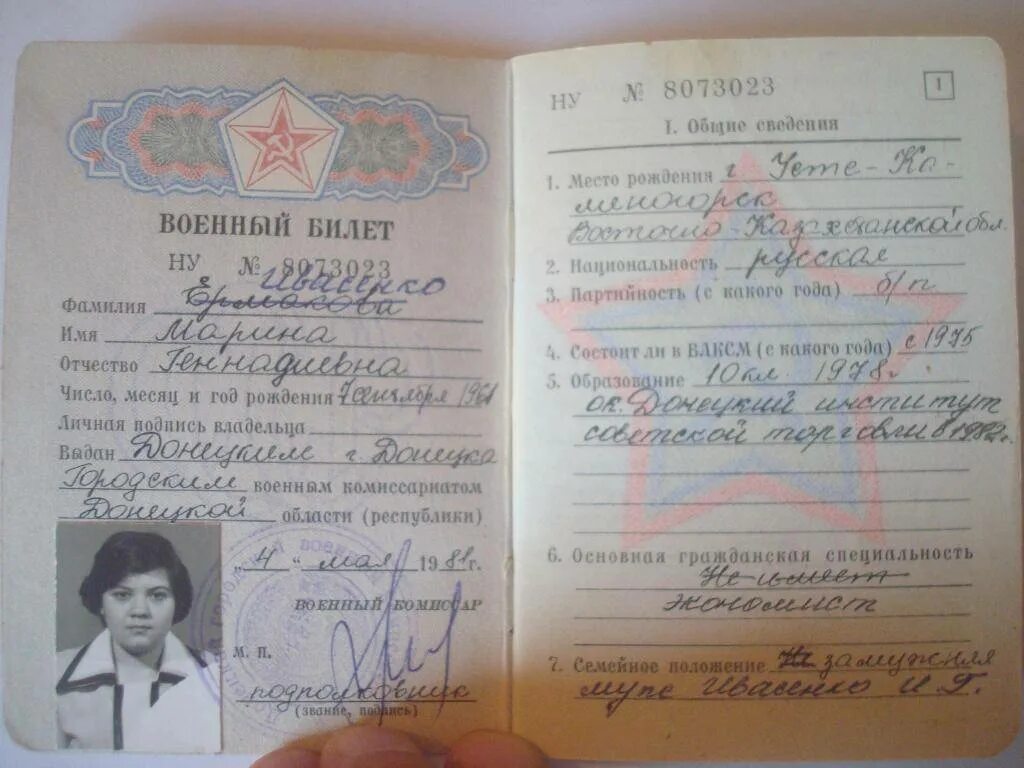 ВОЕННЫЙ БИЛЕТ
НУ № 8073023
Ивасенко
Фамилия Ермакова
Имя Марина
Отчество Геннадиевна
Число, месяц и год рождения 7 сентября 1961
Личная подпись владельца
Выдан Донецким г. Донецка
Городским военным комиссариатом
Донецкой области (республики)
"4" мая 1981г.
ВОЕННЫЙ КОМИССАР
М. П.
подполковник
(звание, подпись)
НУ № 8073023
1
I. Общие сведения
1. Место рождения г. Усть-Ка-
меногорск
Восточно-Казахстанской обл.
2. Национальность русская
3. Партийность (с какого года) б/п
4. Состоит ли в ВЛКСМ (с какого года) с 1975
5. Образование 10 кл. 1978г
ок. Донецкий институт
советской торговли в 1982г.
6. Основная гражданская специальность
Не имеет
экономист
7. Семейное положение замужняя
муж Ивасенко И.Г.